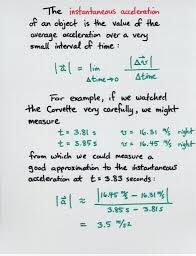 The instantaneous acceleration
of an object is the value of the
average acceleration over a very
small interval of time:
|a⃗| = lim |Δv⃗| / Δtime
Δtime→0
For example, if we watched
the Corvette very carefully, we might
measure
t = 3.81 s v = 16.31 m/s right
t = 3.85 s v = 16.45 m/s right
from which we could measure a
good approximation to the instantaneous
acceleration at t = 3.83 seconds:
|a⃗| ≈ |16.45 m/s - 16.31 m/s| / 3.85 s - 3.81 s
= 3.5 m/s²